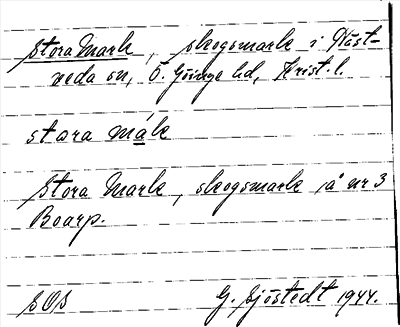 Stora Mark, skogsmark i Väst-
veda sn, Ö. Göinge hd, Krist. l.
stora mák
Stora Mark, skogsmark å nr 3
Boarp.
SOS G. Sjöstedt 1944.